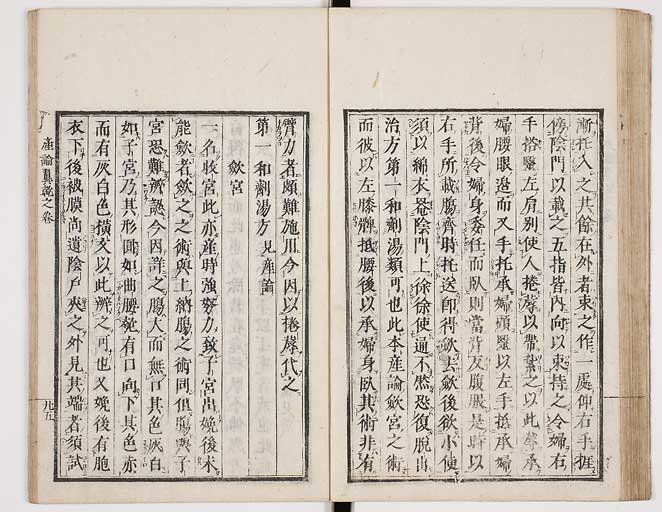 漸托入之其餘在外者束之作一處仰右手捱
傍陰門以載之五指皆內向以束持之令婦右
手搭醫左肩別使人捲以帶繫之以此承
婦腰眼邊而又手托承婦頭醫以左手抵承婦
背後令婦身委任而臥則當背反腹脹是時以
右手所載腸齊時托送卽得歛去歛後欲小便
須以綿衣菴陰門上徐徐使通不然恐復脫出
治方第一和劑湯類可也此本產論歛宮之術
而彼以左膝牌抵腰後以承婦身臥其術非有
臂力者頗難施用今因以捲代之
第一和劑湯方見產論
歛宮
一名收宮此亦產時強努力致子宮出娩後未
能歛者歛之之術與上納腸之術同但腸與子
宮恐難辨認今因詳之腸大而無口其色灰白
如子宮乃其形圓如曲腰甕有口向下其色赤
而有灰白色橫文以此辨之可也又娩後有胞
衣下後被膜尚遺陰戶夾之外見其端者須試
產論翼乾之卷
九五